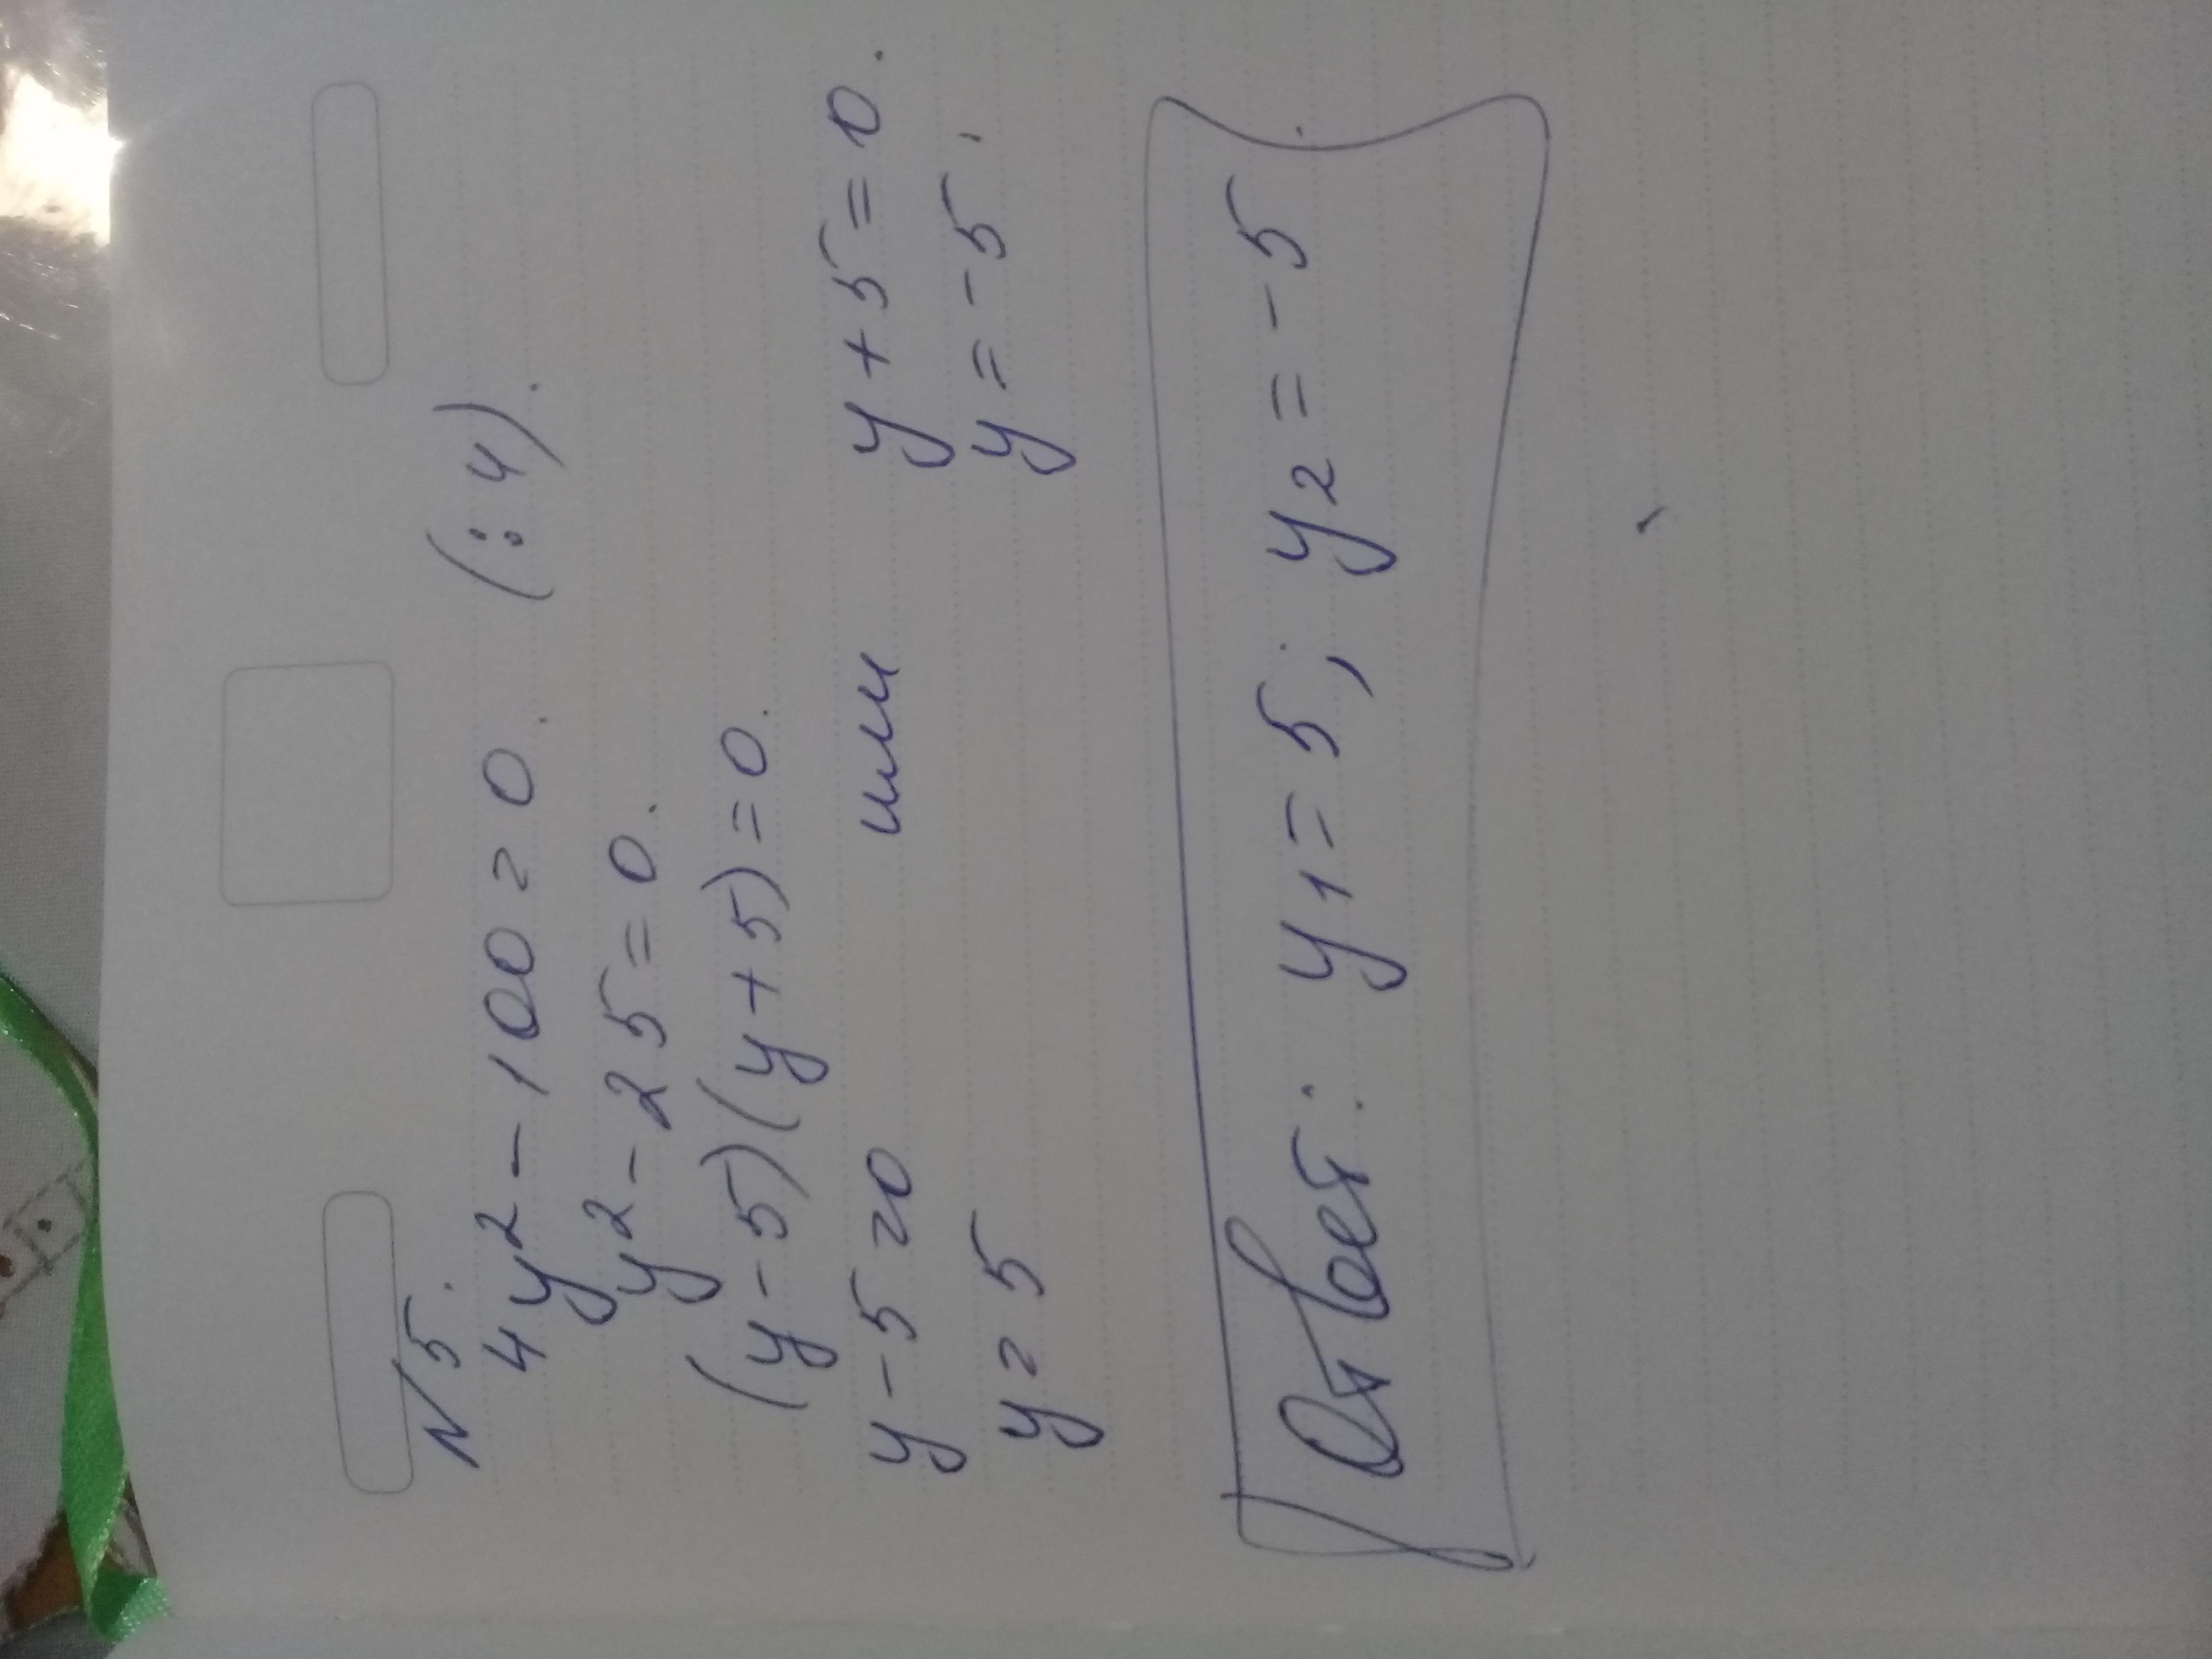 N5.
4y² - 100 = 0. (:4).
y² - 25 = 0.
(y - 5)(y + 5) = 0.
y - 5 = 0 или y + 5 = 0.
y = 5 y = -5.
Ответ: y₁ = 5; y₂ = -5